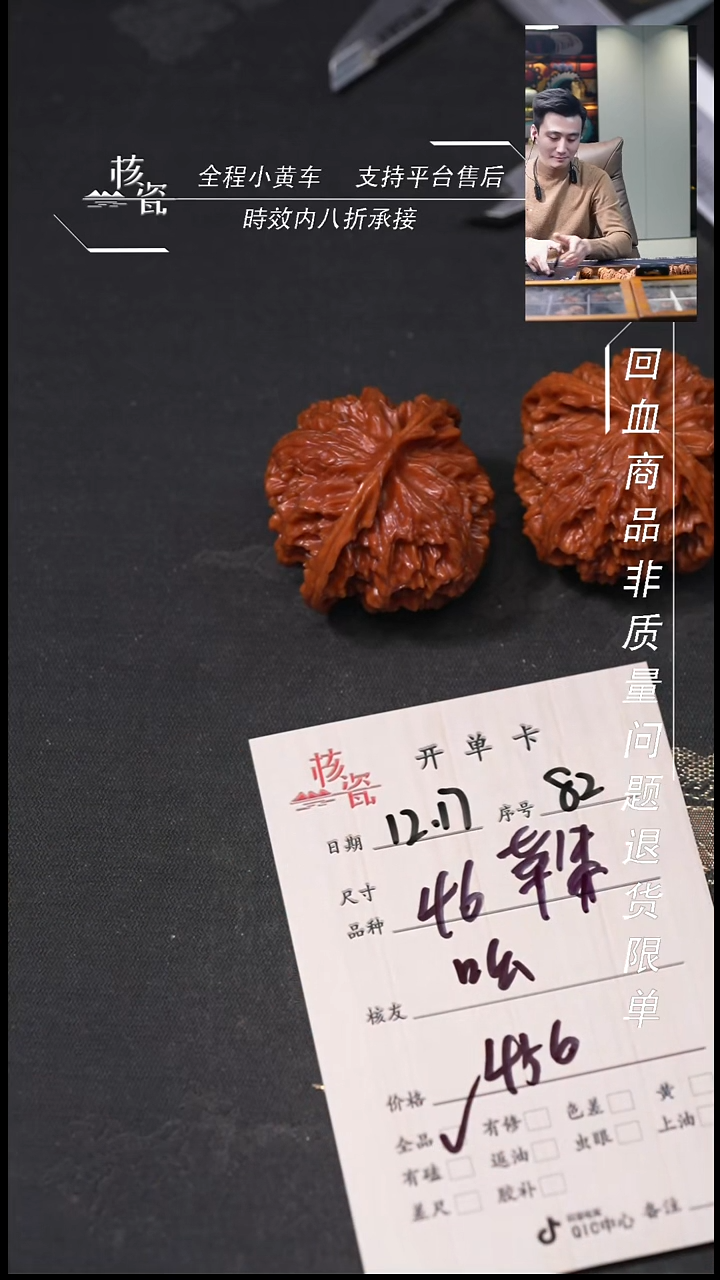 核瓷
全程小黄车 支持平台售后
時效内八折承接
回血商品非质量问题退货限单
核瓷
开单卡
日期 12.17 序号 82
尺寸
品种 46
核友
价格 456
全品 ✓ 有修 色差 黄
有磕 返油 虫眼 上油
差尺 胶补
QIC中心 备注